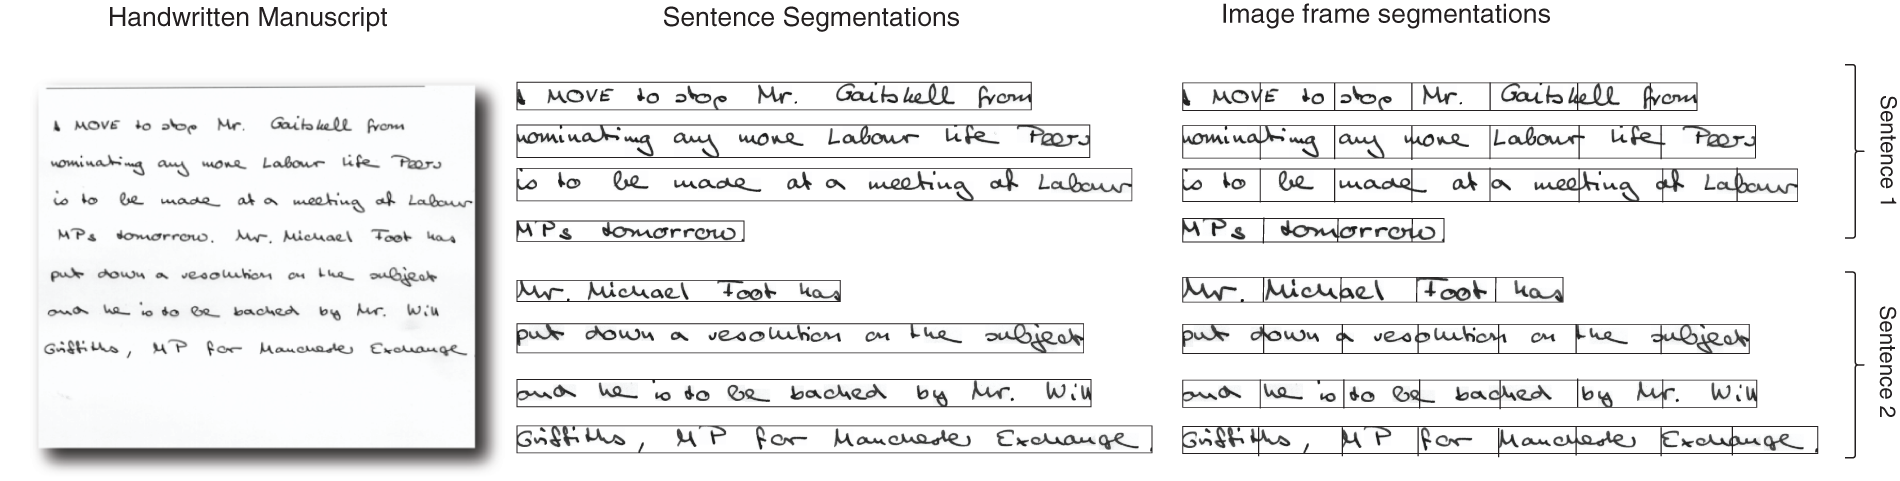 Handwritten Manuscript
Sentence Segmentations
Image frame segmentations
A MOVE to stop Mr. Gaitskell from
nominating any more Labour life Peers
is to be made at a meeting of Labour
MPs tomorrow. Mr. Michael Foot has
put down a resolution on the subject
and he is to be backed by Mr. Will
Griffiths, MP for Manchester Exchange
A MOVE to stop Mr. Gaitskell from
nominating any more Labour life Peers
is to be made at a meeting of Labour
MPs tomorrow.
Mr. Michael Foot has
put down a resolution on the subject
and he is to be backed by Mr. Will
Griffiths, MP for Manchester Exchange.
A MOVE to stop Mr. Gaitskell from
nominating any more Labour life Peers
is to be made at a meeting of Labour
MPs tomorrow.
Mr. Michael Foot has
put down a resolution on the subject
and he is to be backed by Mr. Will
Griffiths, MP for Manchester Exchange.
Sentence 1
Sentence 2